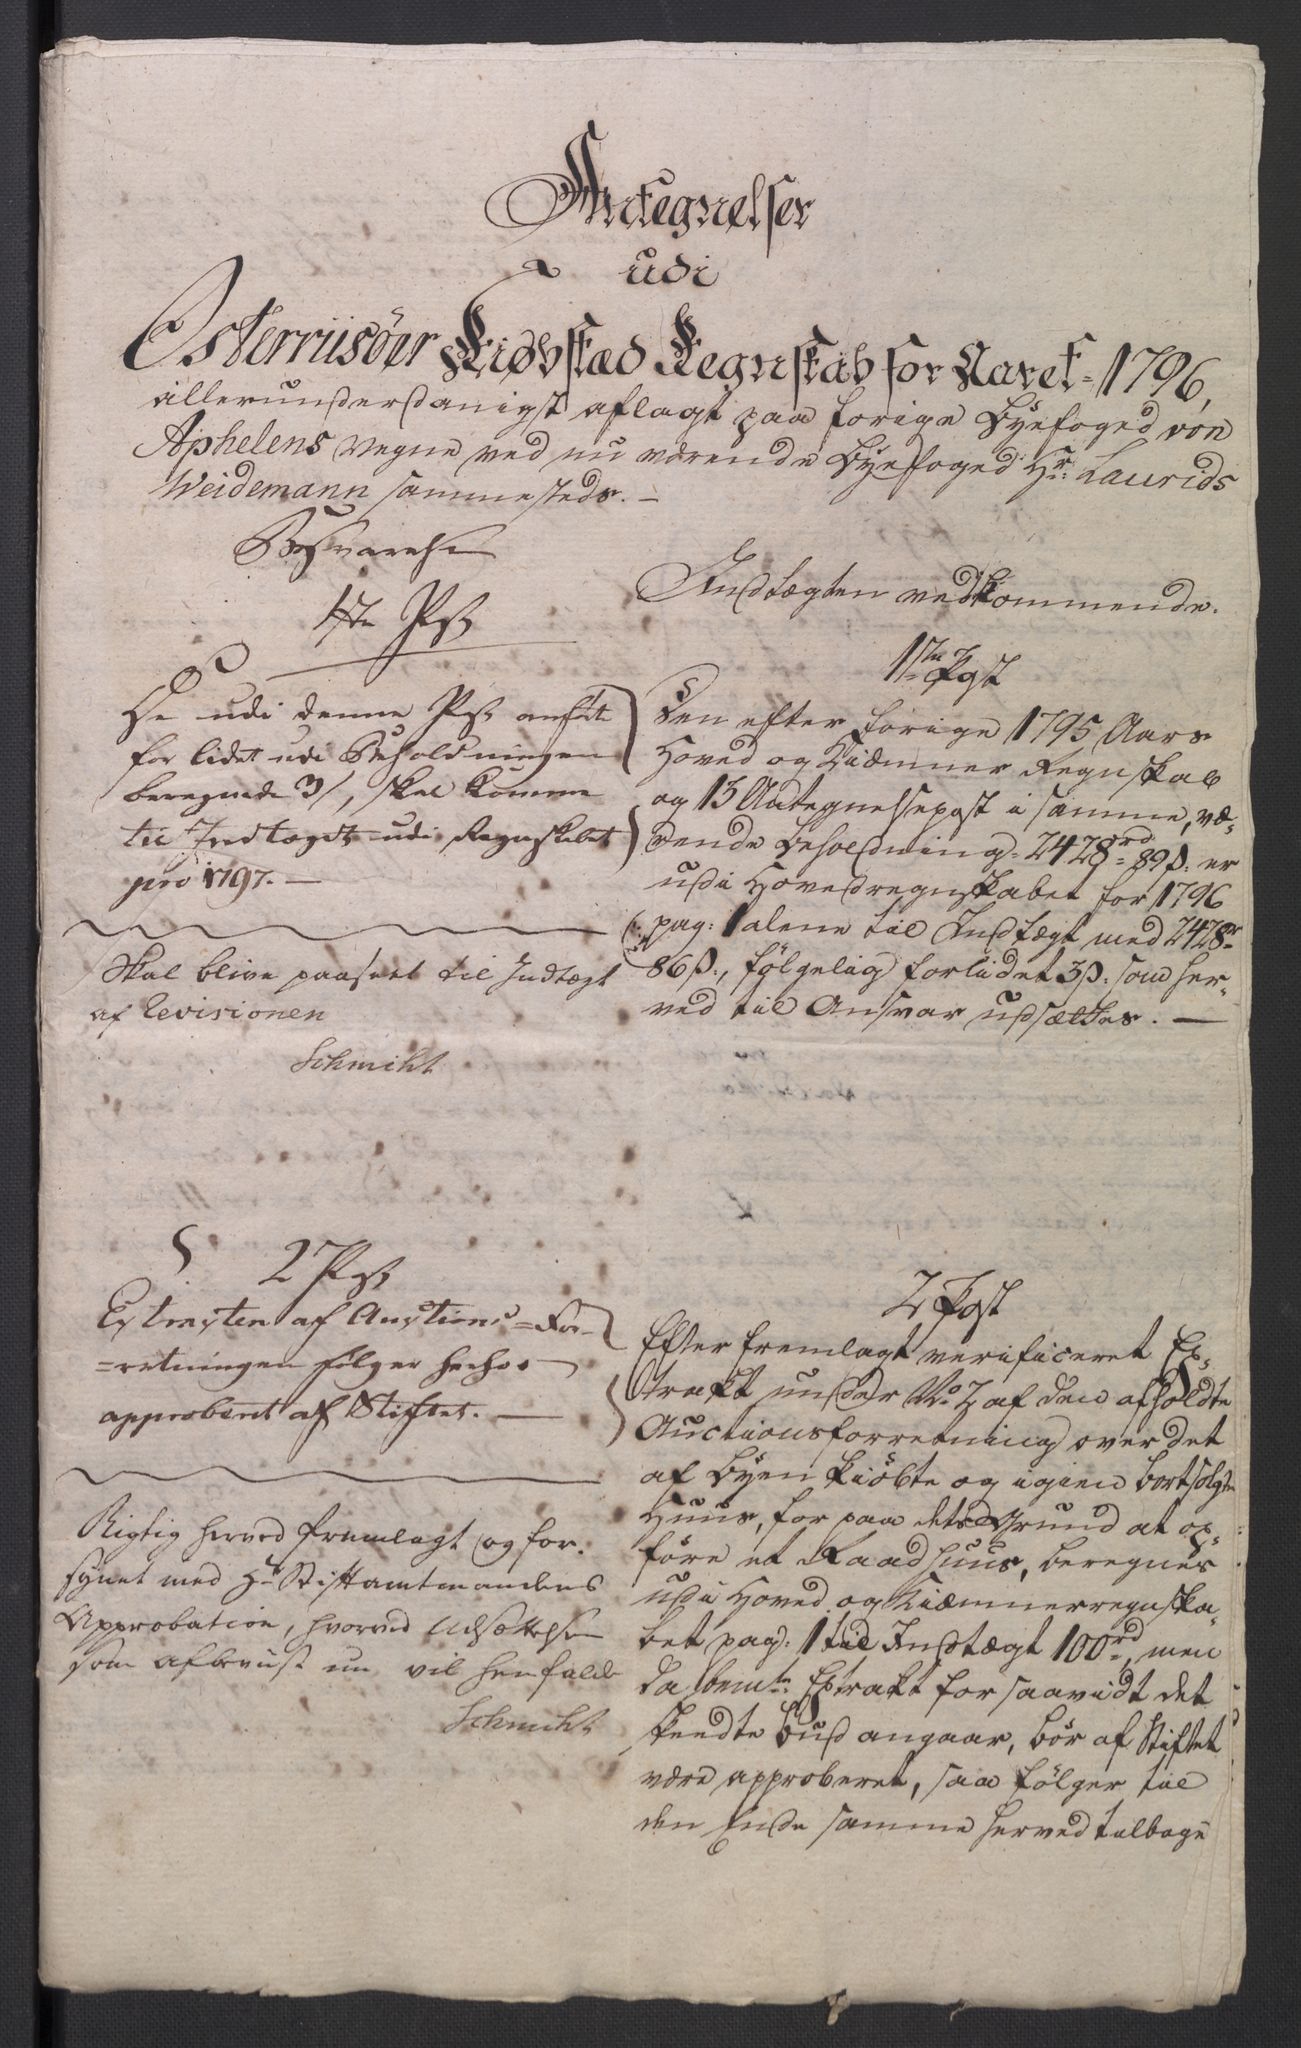 Antegnelser
udi
Østerriisöer Kiøbstæd Regnskab for Aaret 1796,
allerunderdanigst aflagt paa forige Byefoged von
Aphelens Vegne ved nu værende Byefoged Hr: Laurids
Weidemann sammesteds. –
Besvarelse
1ste Post
De udi denne Post anförte
for lidet udi Beholdningen
beregnede 3ß, skal komme
til Indtægt udi Regnskabet
pro 1797. –
Skal blive paaseet til Indtægt
af Revisionen
Schmiht
2 Post
Extracten af Auctions=For=
=retningen følger herhos
approberet af Stiftet. –
Rigtig herved fremlagt og for-
synet med Hr Stiftamtmandens
Approbation, hvorved Udsættelsen
som afbevist nu vil henfalde
Schmiht
Indtægten vedkommende.
1ste Post
Den efter forige 1795 Aars
Hoved og Kiæmner Regnskab
og 13 Antegnelsepost i samme, væ-
rende Beholdning 2428rd 89ß. er
udi Hovedregnskabet for 1796
pag: 1 alene til Indtægt med 2428rd
86ß., følgelig forlidet 3ß. som her-
ved til Ansvar udsættes. –
2 Post
Efter fremlagt verificeret Ex-
trakt under No. 2 af den afholdte
Auctionsforretning over det
af Byen kiöbte og igien bortsolgte
Huus, for paa dets Grund at op-
före et Raadhuus, beregnes
udi Hoved og Kiæmnerregnska-
bet pag: 1 til Indtægt 100rd, men
da bemte Extrakt forsaavidt det
skeedte Bud angaar, bör af Stiftet
være approberet, saa fölger til
den Ende samme herved tilbage